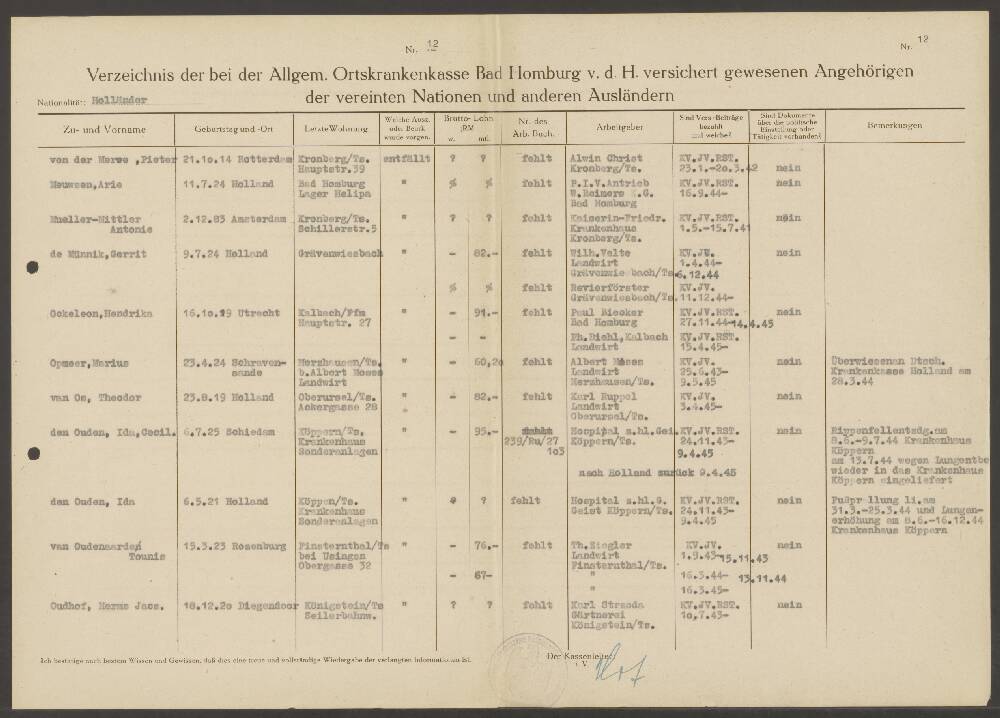 Nr. 12
Nr. 12
Verzeichnis der bei der Allgem. Ortskrankenkasse Bad Homburg v. d. H. versichert gewesenen Angehörigen
der vereinten Nationen und anderen Ausländern
Nationalität: Holländer
Zu- und Vorname Geburtstag und -Ort Letzte Wohnung Welche Ausw. oder Bezük wurde vorgen. Brutto-Lohn RM w. mtl. Nr. des Arb. Buch. Arbeitgeber Sind Vers.-Beiträge bezahlt und welche? Sind Dokumente über die politische Einstellung oder Tätigkeit vorhanden? Bemerkungen
von der Merwe ,Pieter 21.10.14 Rotterdam Kronberg/Ts. entfällt ? ? fehlt Alwin Christ KV.JV.RST. nein
Hauptstr.39 Kronberg/Ts. 23.1.-20.3.42
Meuwsen,Arie 11.7.24 Holland Bad Homburg " fehlt P.I.V.Antrieb KV.JV.RST. nein
Lager Helipa W.Reimers K.G. 16.9.44-
Bad Homburg
Mueller-Mittler 2.12.83 Amsterdam Kronberg/Ts. " ? ? fehlt Kaiserin-Friedr. KV.JV.RST. nein
Antonie Schillerstr.5 Krankenhaus 1.5.-15.7.41
Kronberg/Ts.
de Münnik,Gerrit 9.7.24 Holland Grävenwiesbach " - 82.- fehlt Wilh.Velte KV.JV. nein
Landwirt 1.4.44-
Grävenwiesbach/Ts. 6.12.44
fehlt Revierförster KV.JV.
Grävenwiesbach/Ts. 11.12.44-
Ockeleon,Hendrika 16.10.19 Utrecht Kalbach/Ffm " - 91.- fehlt Paul Bieoker KV.JV.RST. nein
Hauptstr. 27 Bad Homburg 27.11.44-14.4.45
- - Ph.Biehl,Kalbach KV.JV.RST.
Landwirt 15.4.45-
Opmeer,Marius 23.4.24 Schraven- Merzhausen/Ts. " - 60,20 fehlt Albert Moses KV.JV. nein Überwiesenan Dtsch.
sande b.Albert Moses Landwirt 25.6.43- Krankenkasse Holland am
Landwirt Merzhausen/Ts. 9.5.45 28.3.44
van Os, Theodor 23.8.19 Holland Oberursel/Ts. " - 82.- fehlt Karl Ruppel KV.JV. nein
Ackergasse 28 Landwirt 3.4.45-
Oberursel/Ts.
den Ouden, Ida,Cecil. 6.7.25 Schiedam Köppern/Ts. " - 95.- fehlt Hospital z.hl.Gei. KV.JV.RST. nein Rippenfellentzdg.am
Krankenhaus 239/Ru/27 Köppern/Ts. 24.11.43- 8.6.-9.7.44 Krankenhaus
Sonderanlagen 103 9.4.45 Köppern
am 13.7.44 wegen Lungentbc
nach Holland zurück 9.4.45 wieder in das Krankenhaus
Köppern eingeliefert
den Ouden, Ida 6.5.21 Holland Köppen/Ts. " ? ? fehlt Hospital z.hl.G. KV.JV.RST. nein Fußprellung li.am
Krankenhaus Geist Köppern/Ts. 24.11.43- 31.3.-25.3.44 und Lungen-
Sonderanlagen 9.4.45 erhöhung am 8.6.-16.12.44
Krankenhaus Köppern
van Oudenaarden 15.3.23 Rosenburg Finsternthal/Ts " - 76,- fehlt Th.Ziegler KV.JV. nein
Tounis bei Usingen Landwirt 1.9.43-15.11.43
Obergasse 32 Finsternthal/Ts.
- 67- " 16.3.44- 13.11.44
" 16.3.45-
Oudhof, Herms Jacs. 18.12.20 Diegendoor Königstein/Ts " ? ? fehlt Karl Strzoda KV.JV.RST. nein
Seilerbahnw. Gärtnerei 10.7.43-
Königstein/Ts.
Ich bestätige nach bestem Wissen und Gewissen, daß dies eine treue und vollständige Wiedergabe der verlangten Informationen ist.
Der Kassenleiter
i. V.